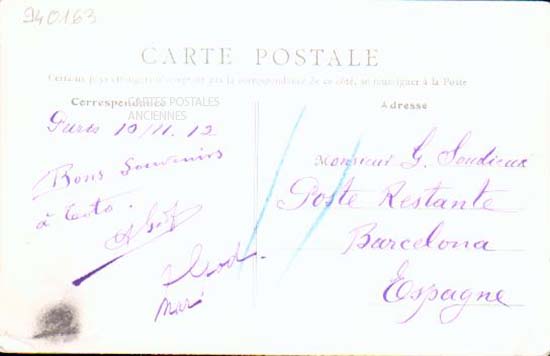 940163
CARTE POSTALE
Certains pays étrangers n'acceptant pas la correspondance de ce côté, se renseigner à la Poste
Correspondance
CARTES POSTALES
ANCIENNES
Adresse
Paris 10/11. 12
Bons Souvenirs
à Toto.
Monsieur G.
Poste Restante
Barcelona
Espagne